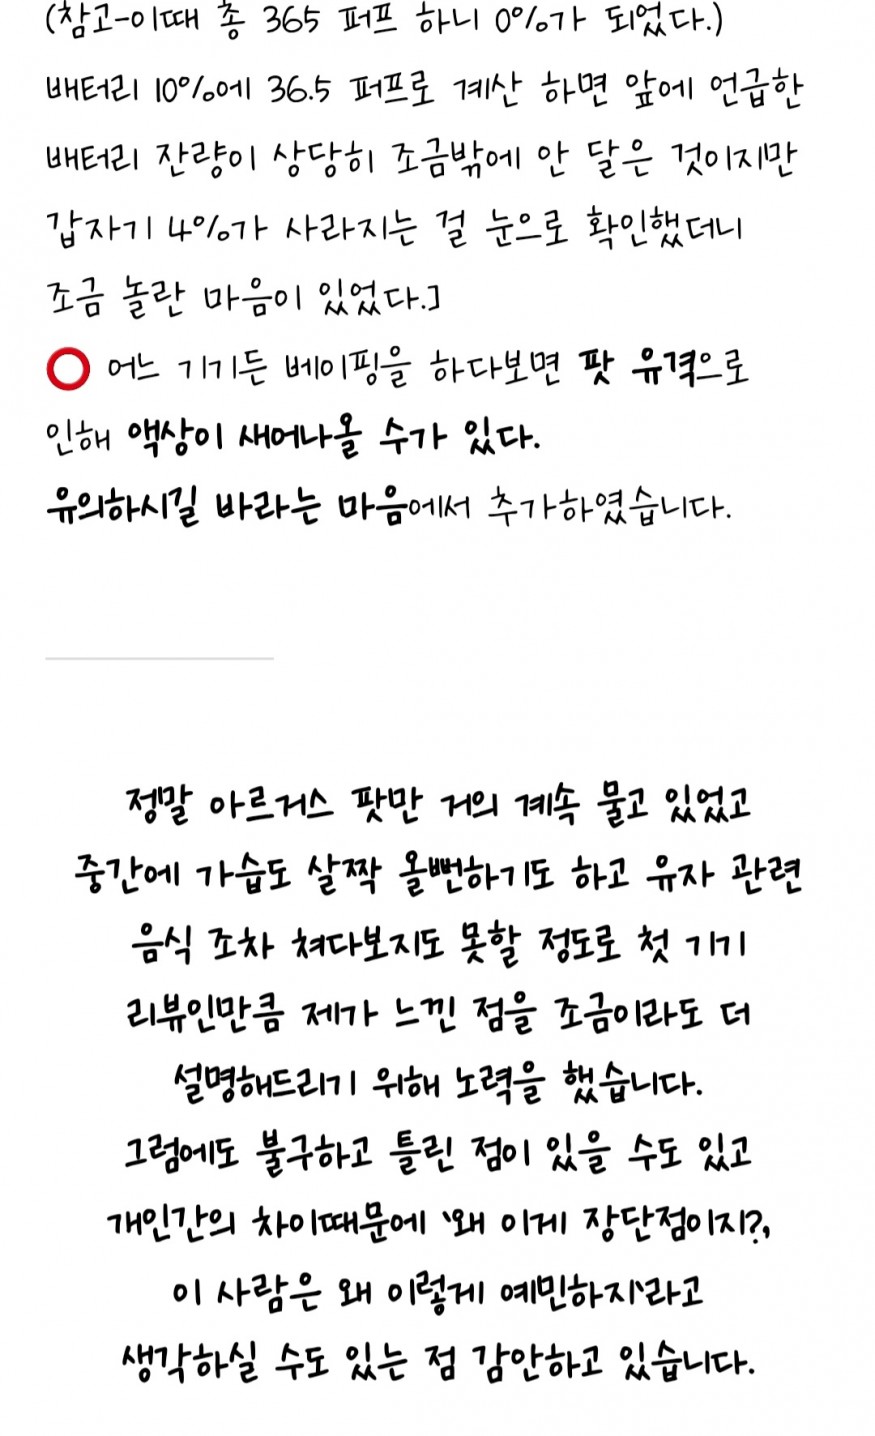 (참고-이때 총 365 퍼프 하니 0%가 되었다.)
배터리 10%에 36.5 퍼프로 계산 하면 앞에 언급한
배터리 잔량이 상당히 조금밖에 안 닳은 것이지만
갑자기 4%가 사라지는 걸 눈으로 확인했더니
조금 놀란 마음이 있었다.]
⭕ 어느 기기든 베이핑을 하다보면 팟 유격으로
인해 액상이 새어나올 수가 있다.
유의하시길 바라는 마음에서 추가하였습니다.
정말 아르거스 팟만 거의 계속 물고 있었고
중간에 가습도 살짝 올뻔하기도 하고 유자 관련
음식 조차 쳐다보지도 못할 정도로 첫 기기
리뷰인만큼 제가 느낀 점을 조금이라도 더
설명해드리기 위해 노력을 했습니다.
그럼에도 불구하고 틀린 점이 있을 수도 있고
개인간의 차이때문에 '왜 이게 장단점이지?,
이 사람은 왜 이렇게 예민하지'라고
생각하실 수도 있는 점 감안하고 있습니다.